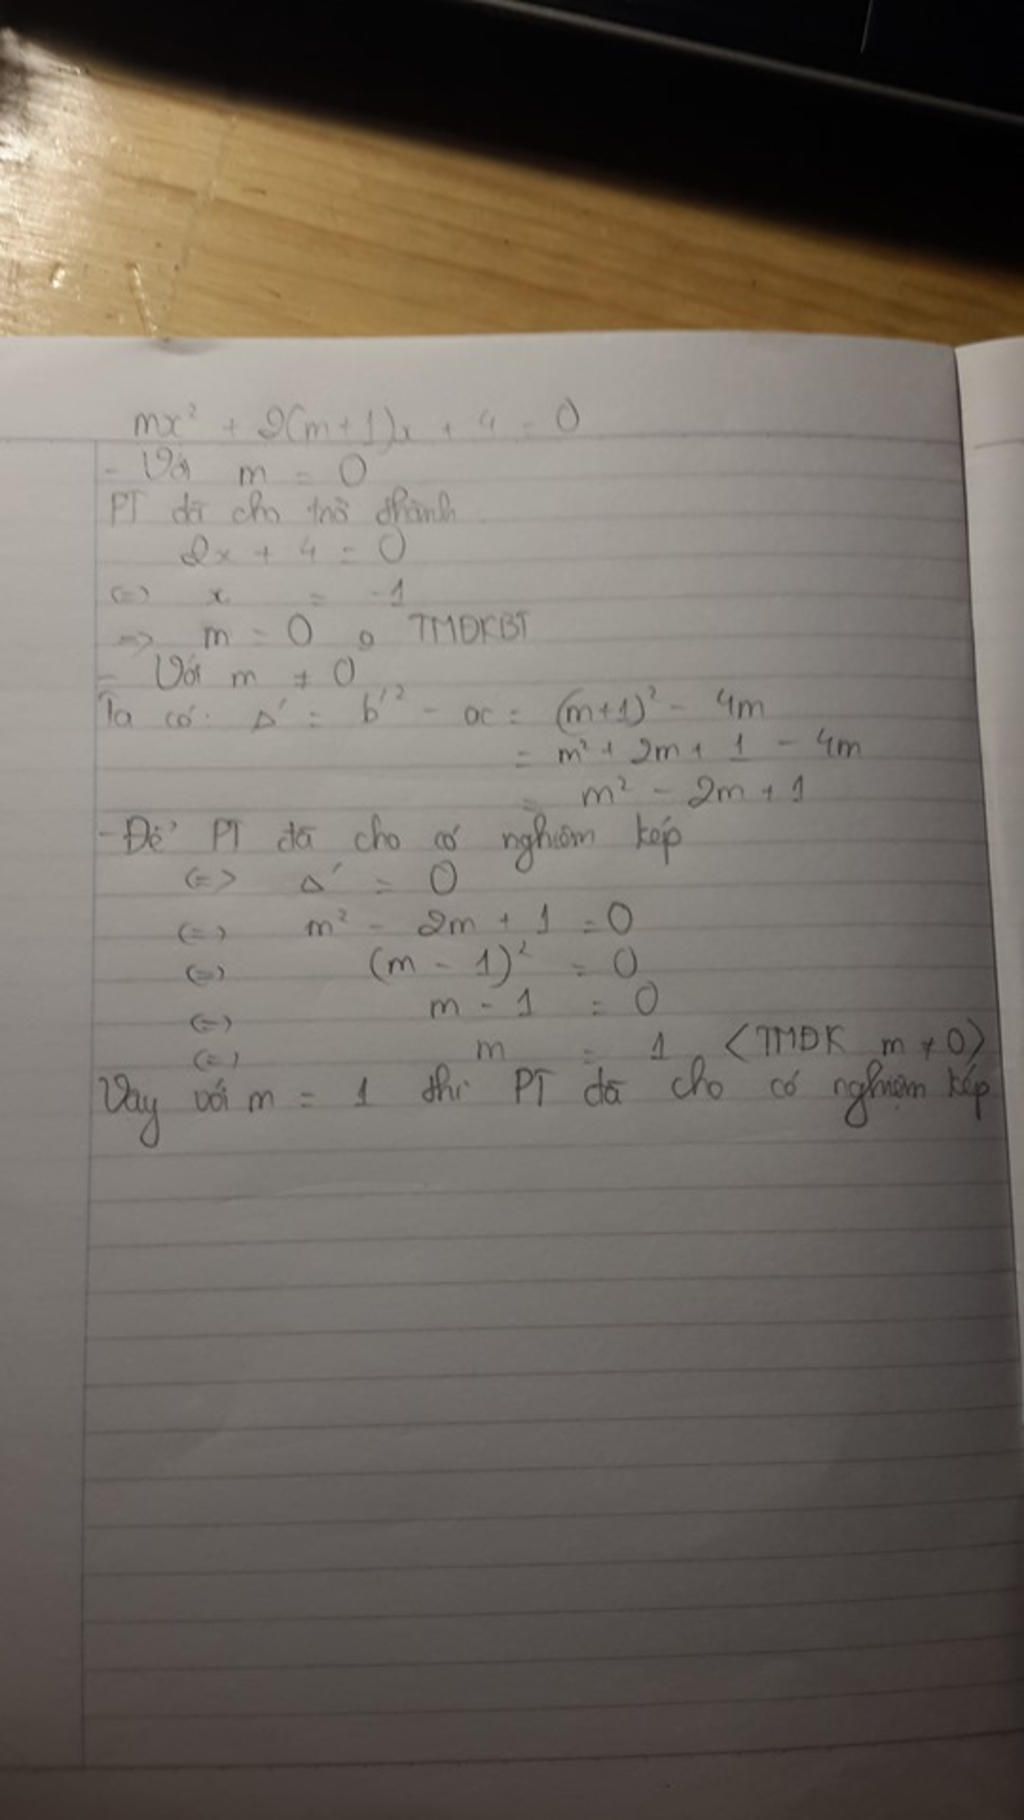 mx² + 2(m+1)x + 4 = 0
- Với m = 0
PT đã cho trở thành
2x + 4 = 0
<=> x = -1
=> m = 0 0 TMĐKBT
- Với m ≠ 0
Ta có: Δ' = b'² - ac = (m+1)² - 4m
= m² + 2m + 1 - 4m
= m² - 2m + 1
- Để PT đã cho có nghiệm kép
<=> Δ' = 0
<=> m² - 2m + 1 = 0
<=> (m - 1)² = 0
<=> m - 1 = 0
<=> m = 1 <TMĐK m ≠ 0>
Vậy với m = 1 thì PT đã cho có nghiệm kép